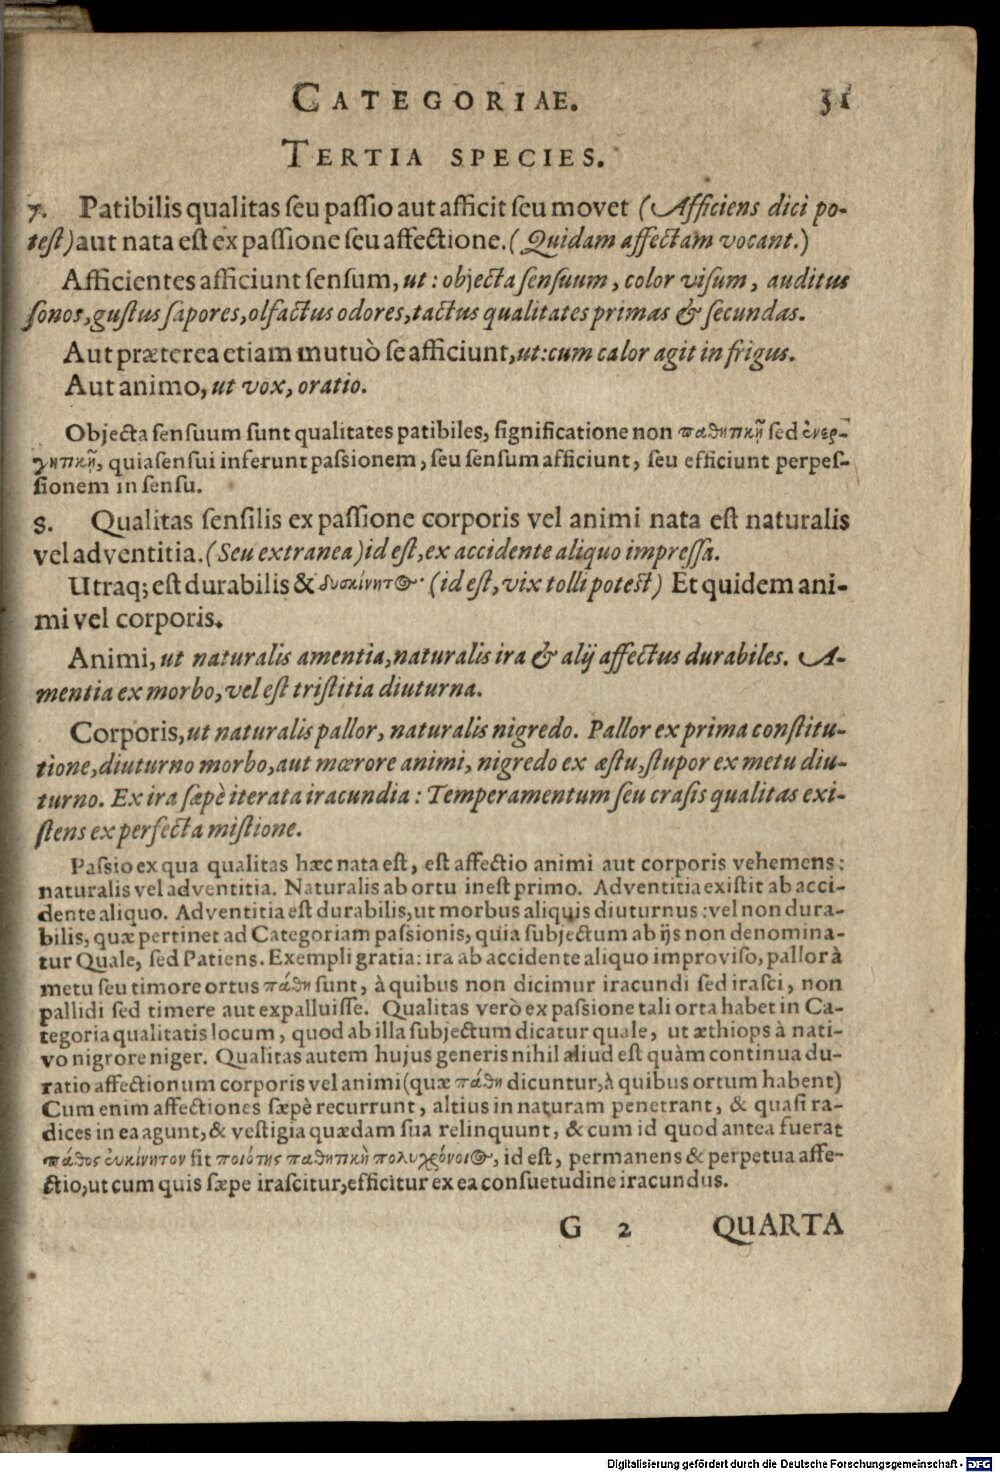 CATEGORIAE. 31
TERTIA SPECIES.
7. Patibilis qualitas seu passio aut afficit seu movet (Afficiens dici po-
test) aut nata est ex passione seu affectione. (Quidam affectam vocant.)
Afficientes afficiunt sensum, ut: objecta sensuum, color visum, auditus
sonos, gustus sapores, olfactus odores, tactus qualitates primas & secundas.
Aut præterea etiam mutuò se afficiunt, ut: cum calor agit in frigus.
Aut animo, ut vox, oratio.
Objecta sensuum sunt qualitates patibiles, significatione non παθητικῇ sed ἐνερ-
γητικῇ, quia sensui inferunt passionem, seu sensum afficiunt, seu efficiunt perpes-
sionem in sensu.
8. Qualitas sensilis ex passione corporis vel animi nata est naturalis
vel adventitia. (Seu extranea) id est, ex accidente aliquo impressa.
Utraq; est durabilis & δυσκίνητος. (id est, vix tolli potest) Et quidem ani-
mi vel corporis.
Animi, ut naturalis amentia, naturalis ira & alij affectus durabiles. A-
mentia ex morbo, vel est tristitia diuturna.
Corporis, ut naturalis pallor, naturalis nigredo. Pallor ex prima constitu-
tione, diuturno morbo, aut mœrore animi, nigredo ex æstu, stupor ex metu diu-
turno. Ex ira sæpè iterata iracundia: Temperamentum seu crasis qualitas exi-
stens ex perfecta mistione.
Passio ex qua qualitas hæc nata est, est affectio animi aut corporis vehemens:
naturalis vel adventitia. Naturalis ab ortu inest primo. Adventitia existit ab acci-
dente aliquo. Adventitia est durabilis, ut morbus aliquis diuturnus: vel non dura-
bilis, quæ pertinet ad Categoriam passionis, quia subjectum ab ijs non denomina-
tur Quale, sed Patiens. Exempli gratia: ira ab accidente aliquo improviso, pallor à
metu seu timore ortus πάθη sunt, à quibus non dicimur iracundi sed irasci, non
pallidi sed timere aut expalluisse. Qualitas verò ex passione tali orta habet in Ca-
tegoria qualitatis locum, quod ab illa subjectum dicatur quale, ut æthiops à nati-
vo nigrore niger. Qualitas autem hujus generis nihil aliud est quàm continua du-
ratio affectionum corporis vel animi (quæ πάθη dicuntur, à quibus ortum habent)
Cum enim affectiones sæpè recurrunt, altius in naturam penetrant, & quasi ra-
dices in ea agunt, & vestigia quædam sua relinquunt, & cum id quod antea fuerat
πάθος εὐκίνητον fit ποιότης παθητικὴ πολυχρόνιος, id est, permanens & perpetua affe-
ctio, ut cum quis sæpe irascitur, efficitur ex ea consuetudine iracundus.
G 2 QUARTA
Digitalisierung gefördert durch die Deutsche Forschungsgemeinschaft - DFG